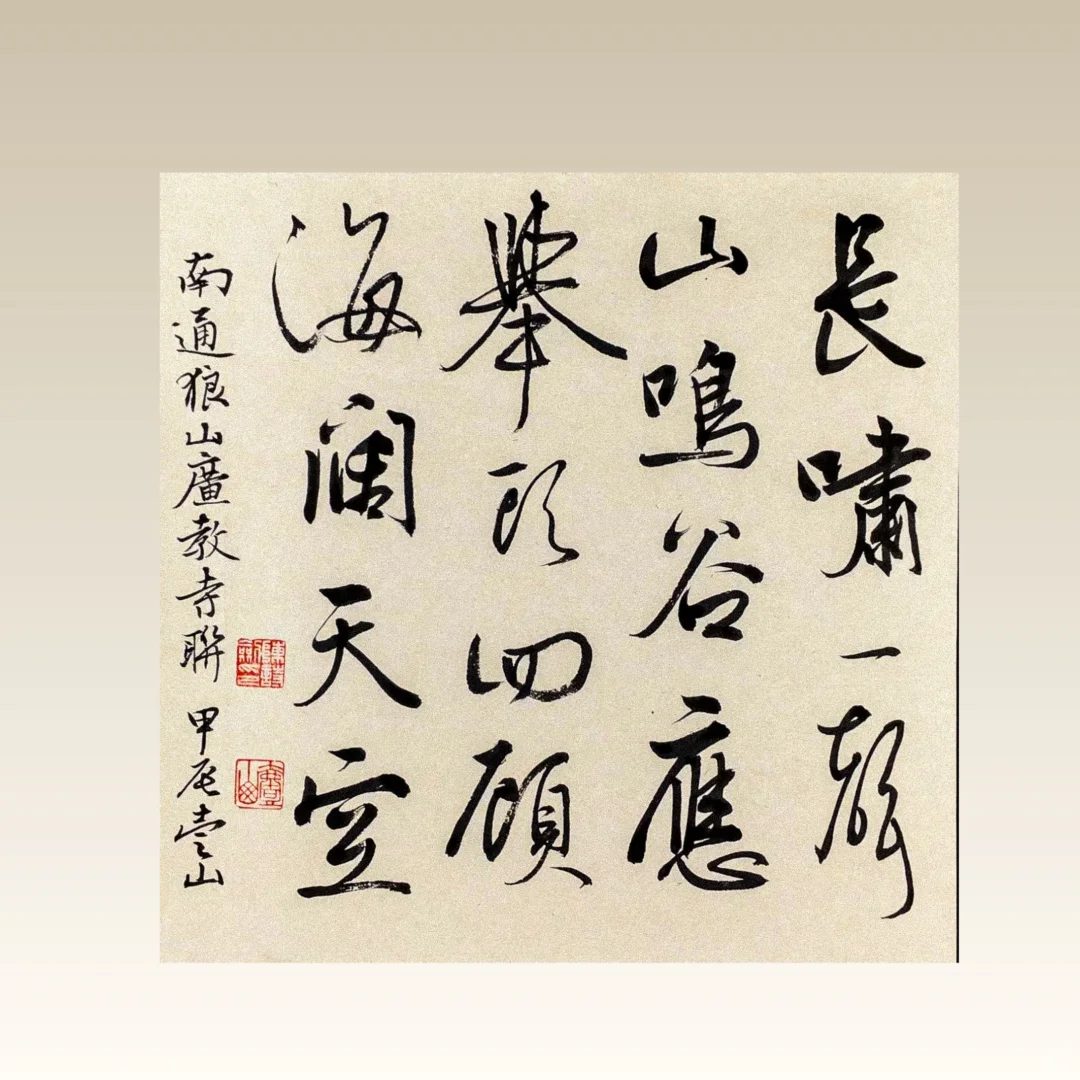 長嘯一聲
山鳴谷應
舉頭四顧
海闊天空
南通狼山廣教寺聯 甲辰 山